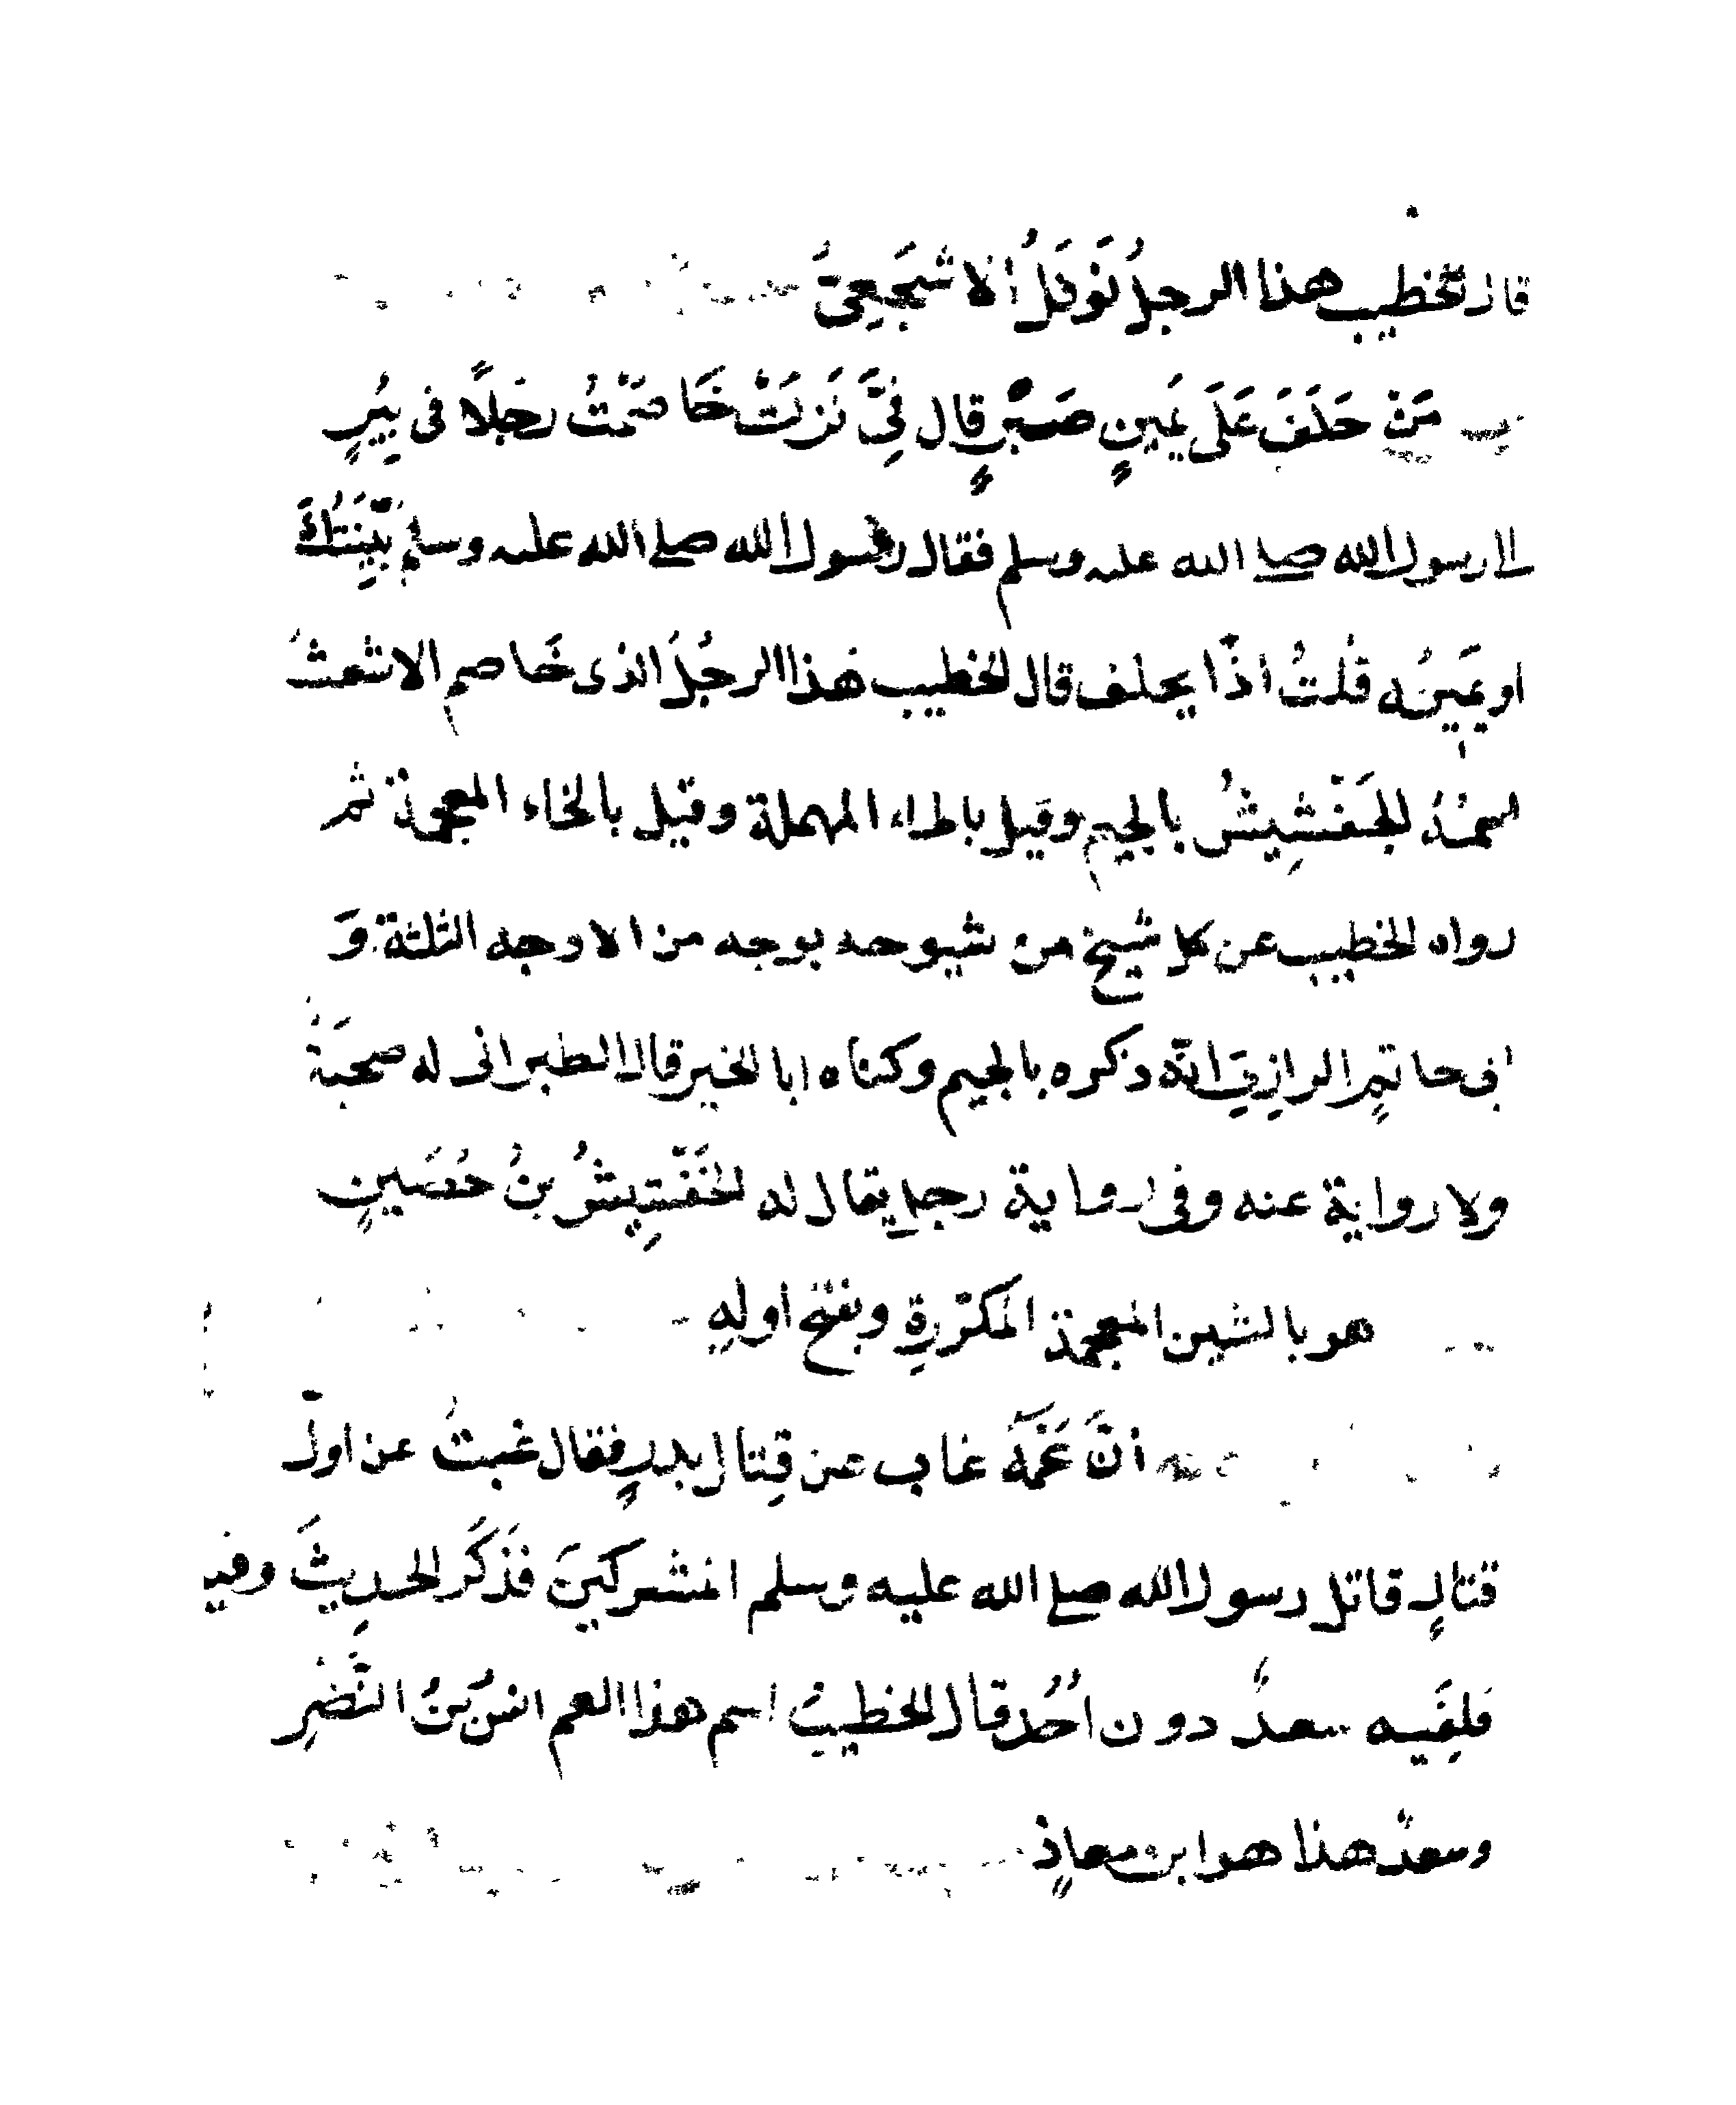 قال الخطيب هذا الرجلُ نَوْفَلُ الاشجَعِيُّ
مَنْ حَلَفَ عَلَى يَمينٍ صَبْرٍ قال فِيَّ نَزَلَتْ خَاصَمْتُ رجلًا فى بِيُرٍ
الى رسول الله صلى الله عليه وسلم فقال رسول الله صلى الله عليه وسلم بَيِّنَتُكَ
او يَمينُه قلتُ اذًا يحلف قال الخطيب هَذا الرجُلُ الذى خَاصم الاشعثَ
اسمُهُ الجَفْشِيشُ بالجيم وقيل بالحاء المهملة وقيل بالخاء المعجمة ثم
رواه الخطيب عن كل شيخ من شيوخه بوجه من الاوجه الثلثة وَ
ابى حاتمٍ الرازِيّ انّه ذكره بالجيم وكناه ابا الخير قال الطبرانى له صحبَةٌ
ولا رواية عنه وفى رواية رجل يقال له الخَفْشِيشُ بنُ حُصَينٍ
هو بالشين المعجمة المكرّرةِ وبفتح اولِهِ
أنَّ عَمَّهُ غاب عن قِتال بدرٍ فقال غبتُ عن اولِ
قتالٍ قاتل رسول الله صلى الله عليه وسلم المشركينَ فذَكَر الحديثَ وفيه
فلقِيَه سعدٌ دون اُحُد قال الخطيبُ اسم هذا العم انسُ بنُ النَّضْرِ
وسعدٌ هذا هو ابن معاذٍ